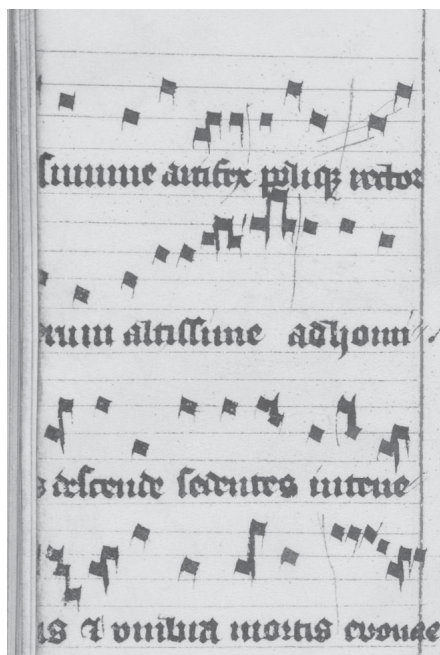 ſumme artifex poliqꝫ rector
rum altiſſime adhomi
s deſcende ſedentes intene
is ⁊ vmbra mortis evovae